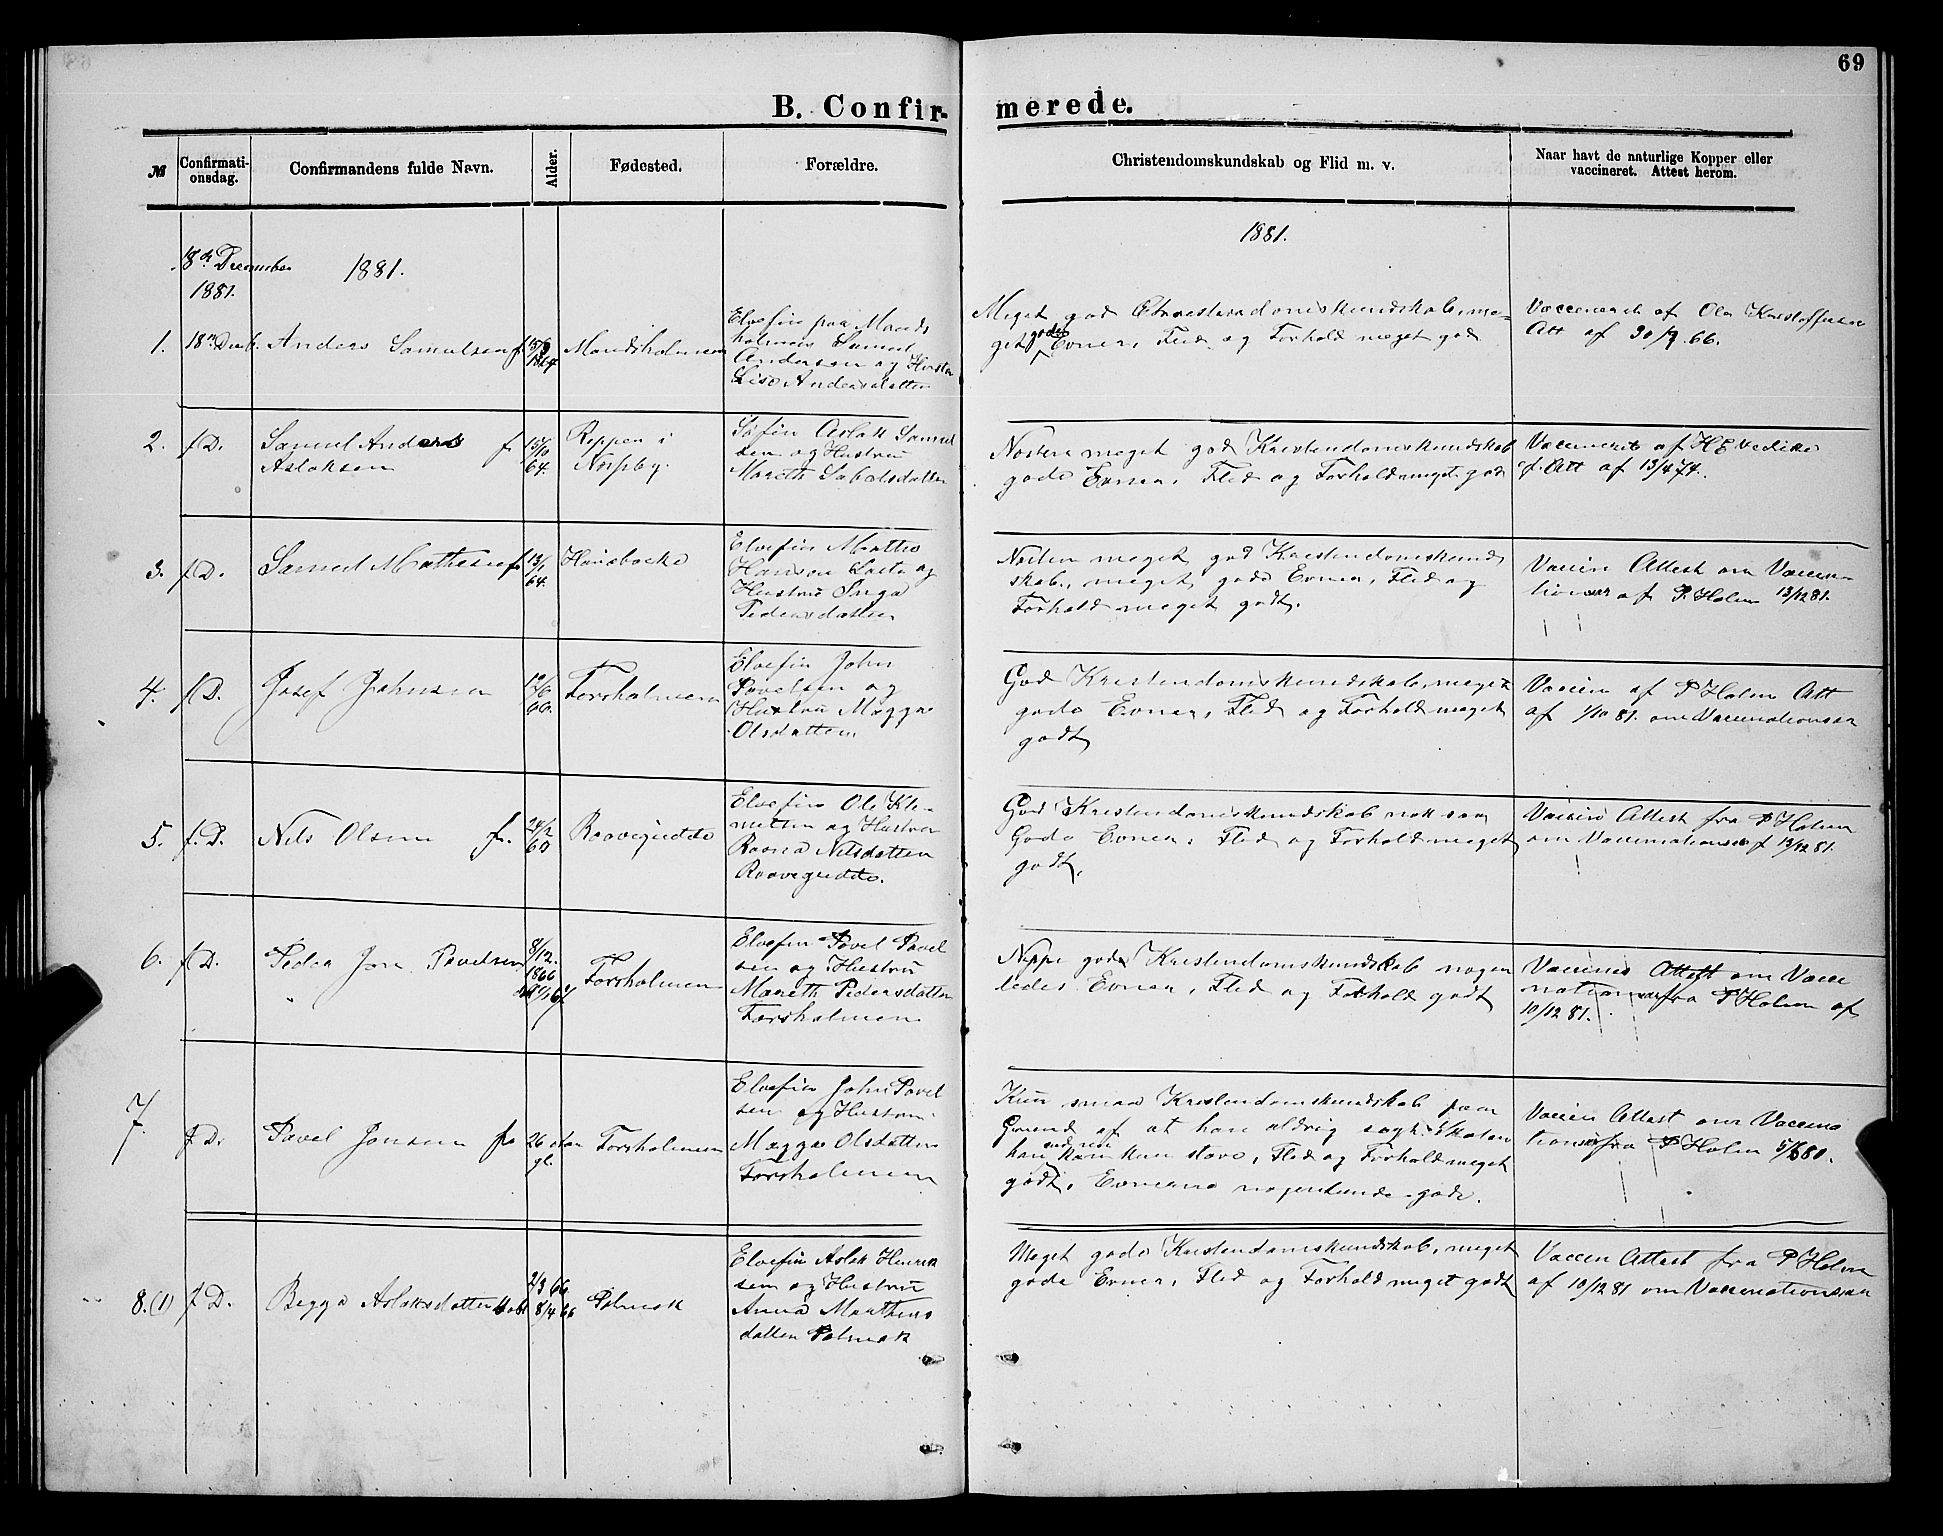 69
B. Confir-
merede.
№
Confirmati-
onsdag.
Confirmandens fulde Navn.
Alder.
Fødested.
Forældre.
Christendomskundskab og Flid m. v.
Naar havt de naturlige Kopper eller
vaccineret. Attest herom.
18de December
1881.
1881.
1881.
1.
Anders Samuelsen
f.
15/9
Mandsholmen
Elvefin paa Mands
holmen Samuel
Andersen og Hustru
Lise Andersdatter
Meget god Christendomskundskab, me-
get gode Evner, Flid og Forhold meget god
Vaccineret af Ola Kristoffersen
Att af 30/9.66.
2.
f D.
Samuel Anders
Aslaksen
f
15/10
64.
Reppen i
Næsby.
Søfin Aslak Samuel
sen og Hustru
Mareth Sabalsdatter
Næsten meget god Kristendomskundskab
gode Evner, Flid og Forhold meget godt
Vaccineret af
Att af 13/4 74.
3.
f D.
Samuel Mathesen
f
12/1
64.
Elvefin Matthis
Hansen og
Hustru Inga
Pedersdatter
Næsten meget god Kristendomskund
skab, meget gode Evner, Flid og
Forhold meget godt.
Vaccin Attest om Vaccina-
tionen af P. Holm 13/12 81.
4.
f D.
Josef Johnsen
12/6
60.
Forsholmen
Elvefin John
Pavelsen og
Hustru Magga
Olsdatter
God Kristendomskundskab, meget
gode Evner, Flid og Forhold meget
godt
Vaccin af P Holm Att
af 1/10 81. om Vaccinationen
5.
f. D.
Nils Olsen
f.
24/2
60
Raavegiedde
Elvefin Ole Kle-
metsen og Hustru
Ravna Nilsdatter
Raavegiedde.
God Kristendomskundskab
Gode Evner, Flid og Forhold meget
godt.
Vaccin Attest fra P Holm
om Vaccinationen af 13/12 81.
6.
f D.
Peder Jon Pavelsen
8/12.
1866
Forsholmen
Elvefin Pavel Pavel
sen og Hustru
Mareth Pedersdatter
Forsholmen
Neppe gode Kristendomskundskab nogen
ledes Evner, Flid og Forhold godt
Vaccines Attest om Vacci
nationen fra P Holm af
10/12 81.
7.
f. D.
Pavel Jonsen
f
26 Aar
gl.
Forsholmen
Elvefin John Pavel
sen og Hustru
Magga Olsdatter
Forsholmen
Kun smaa Kristendomskundskab paa
Grund af at han aldrig søgt Skolen
han kan kun stave, Flid og Forhold meget
godt. Evnerne nogenlunde gode.
Vaccin Attest om Vaccina
tionen fra P Holm 5/6 81.
8.(1)
f D.
Bigga Aslaksdatter
2/3 66
8/4 66
Polmak
Elvefin Aslak Henrik
sen og Hustru
Anna Mathis
datter Polmak
Meget gode Kristendomskundskab, meget
gode Evner, Flid og Forhold meget godt
Vaccin Attest fra P Holm
af 10/12 81 om Vaccinationen